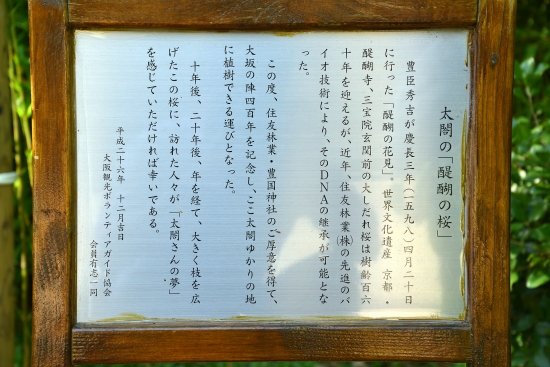 太閤の「醍醐の桜」
豊臣秀吉が慶長三年(一五九八)四月二十日
に行った「醍醐の花見」。世界文化遺産 京都・
醍醐寺、三宝院玄関前の大しだれ桜は樹齢百六
十年を迎えるが、近年、住友林業(株)の先進のバ
イオ技術により、そのDNAの継承が可能とな
った。
この度、住友林業・豊国神社のご厚意を得て、
大坂の陣四百年を記念し、ここ太閤ゆかりの地
に植樹できる運びとなった。
十年後、二十年後、年を経て、大きく枝を広
げたこの桜に、訪れた人々が「太閤さんの夢」
を感じていただければ幸いである。
平成二十六年 十二月吉日
大阪観光ボランティアガイド協会
会員有志一同